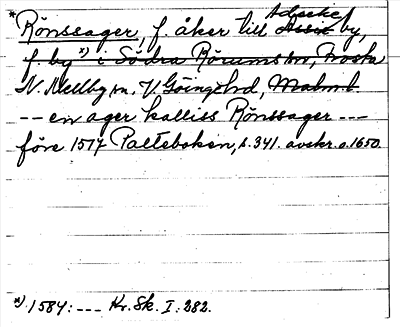 Adjecke
*Rönssager, f. åker till Assie by,
f. by *) i Södra Rörums sn, Frosta
N. Mellby sn. V. Göinge hd, Malm. l.
-- en ager kalliss Rönssager ---
före 1517 Palteboken, s. 341. avskr. o. 1650.
*) 1584: --- Kr. Sk. I: 282.